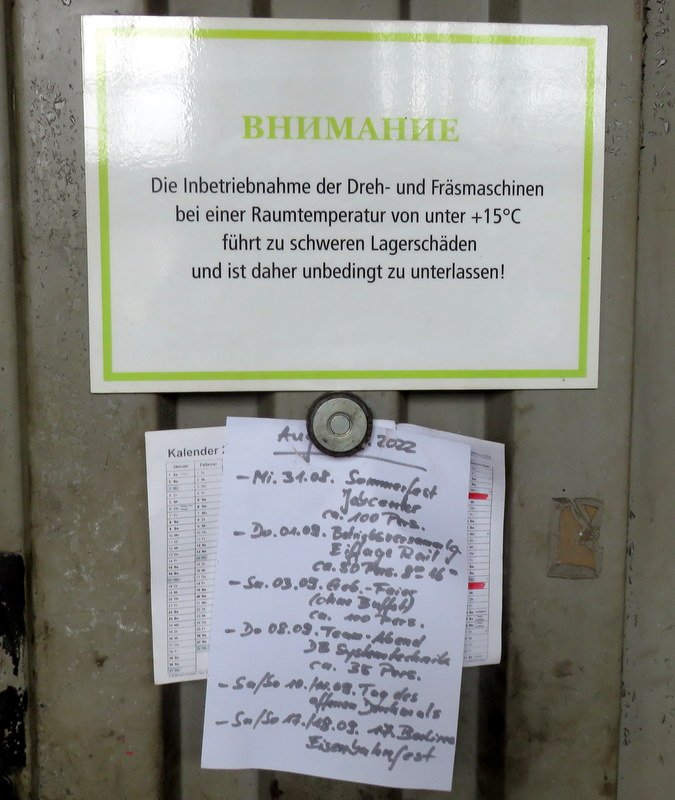 ВНИМАНИЕ
Die Inbetriebnahme der Dreh- und Fräsmaschinen
bei einer Raumtemperatur von unter +15°C
führt zu schweren Lagerschäden
und ist daher unbedingt zu unterlassen!
Kalender
Januar Februar
2022
- Mi. 31.08. Sommerfest
Jobcenter
ca. 100 Pers.
- Do. 01.09. Betriebsversammlg
Eiffage Rail
ca. 30 Pers.
- Sa. 03.09. Geb.-Feier
(ohne Buffet)
ca. 100 Pers.
- Do 08.09. Team-Abend
DB Systemtechnik
ca. 35 Pers.
- Sa/So 10./11.09. Tag des
offenen Denkmals
- Sa/So 17./18.09. 17. Berliner
Eisenbahnfest